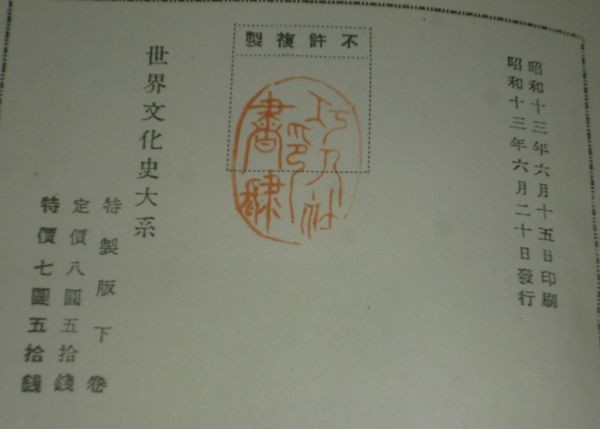 昭和十三年六月十五日印刷
昭和十三年六月二十日發行
不許複製
世界文化史大系
特製版下卷
定價八圓五拾錢
特價七圓五拾錢